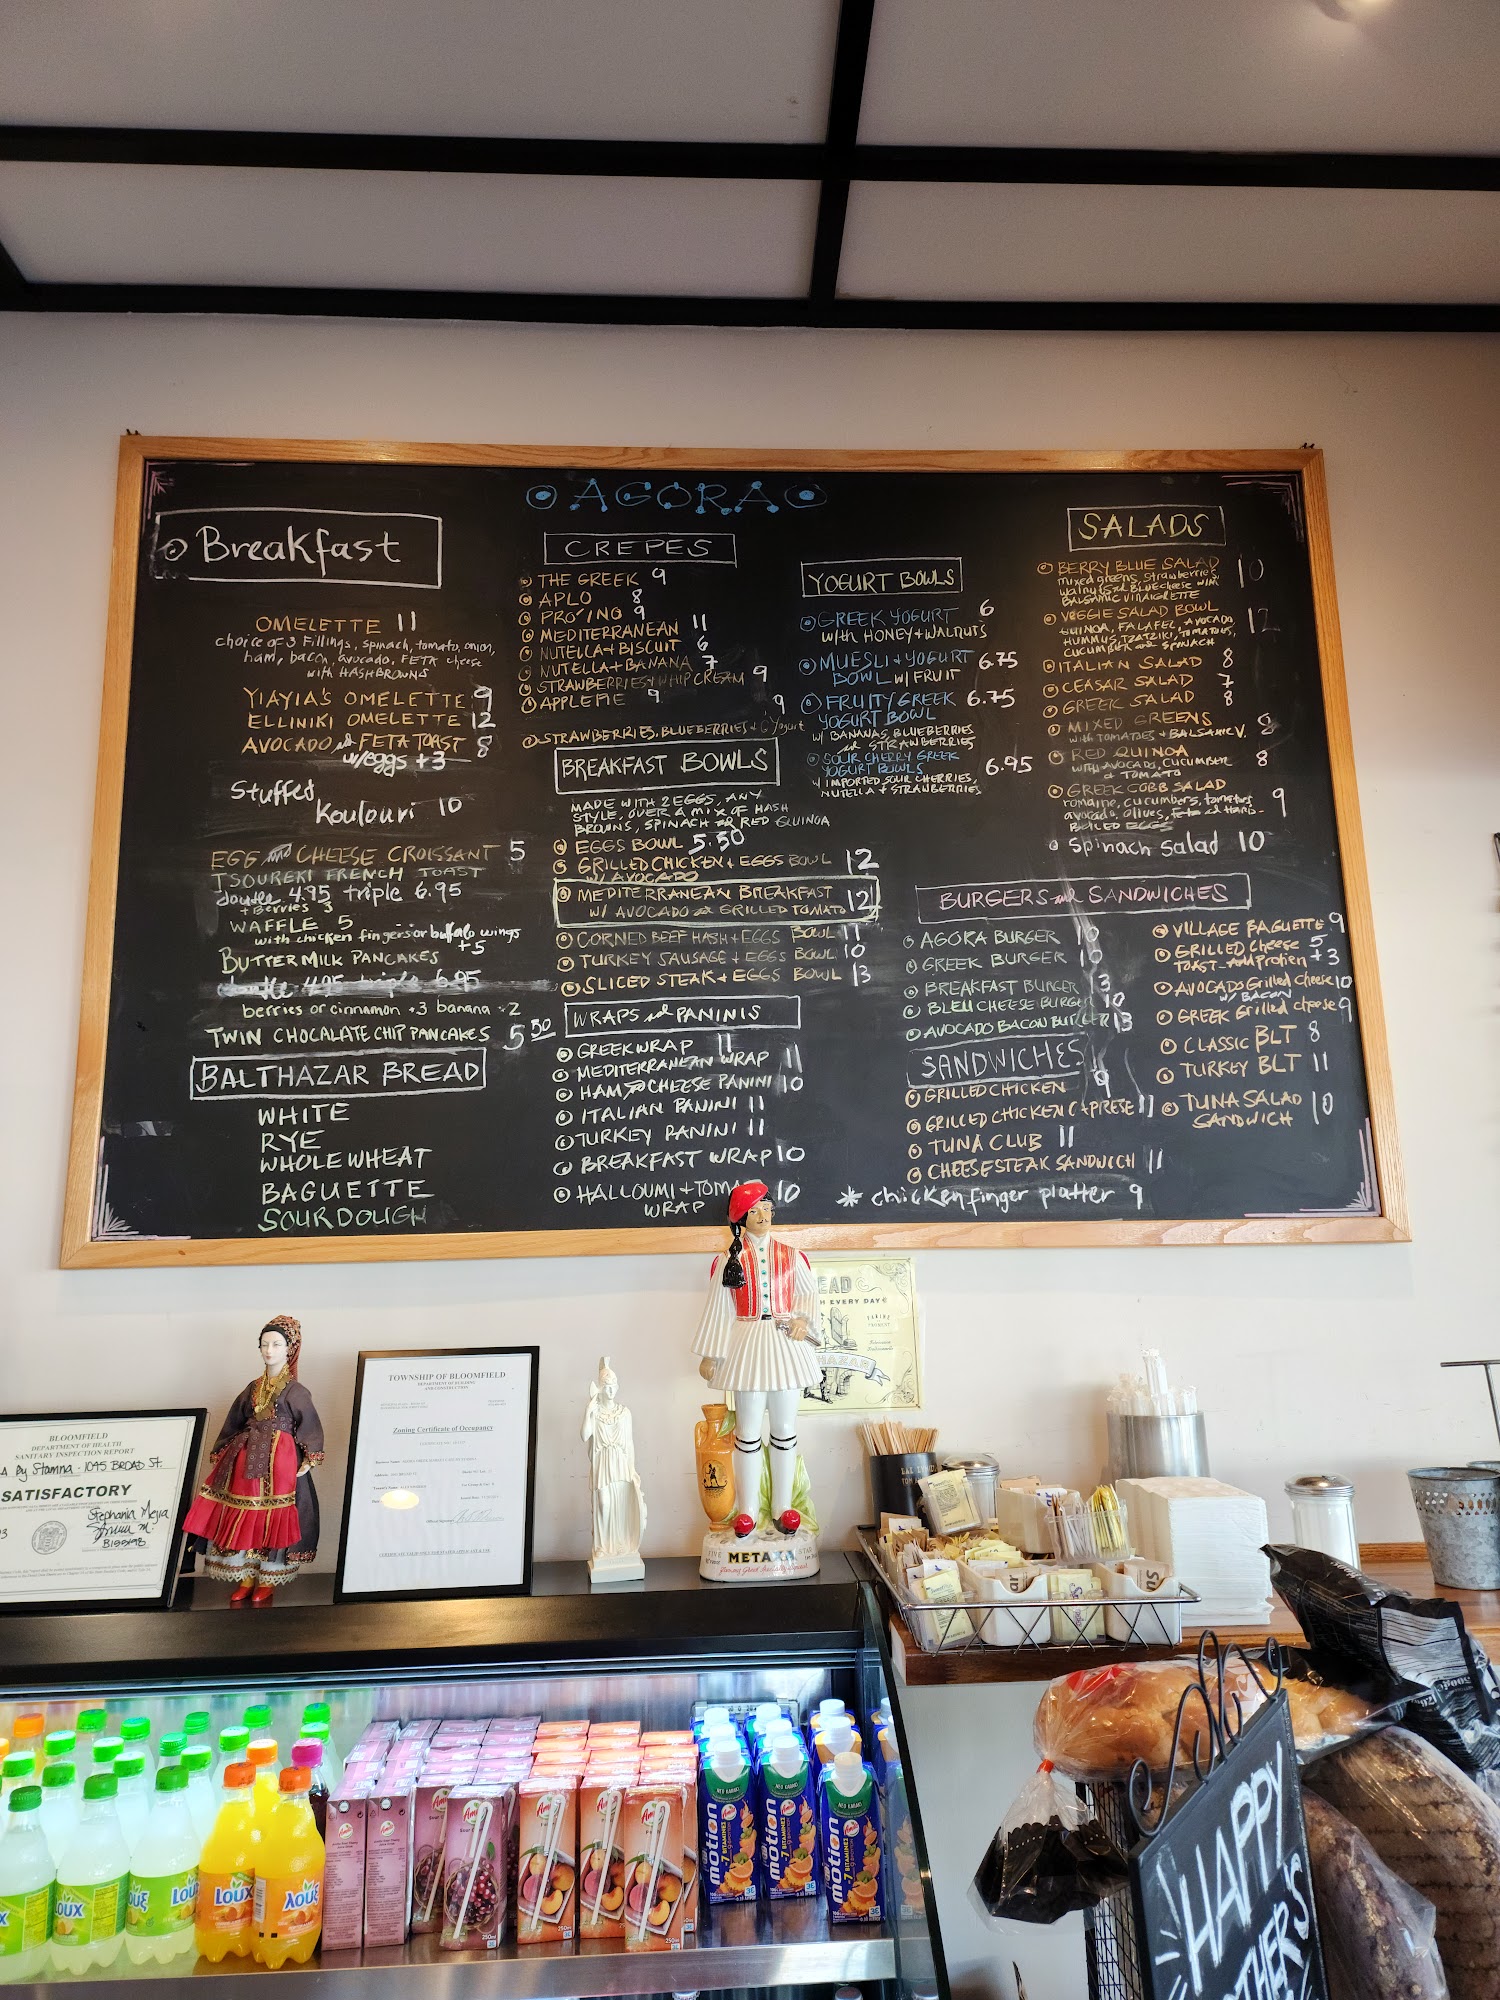 AGORA
Breakfast
OMELETTE 11
choice of 3 Fillings, spinach, tomato, onion,
ham, bacon, avocado, FETA cheese
with HASHBROWNS
YIAYIA'S OMELETTE 9
ELLINIKI OMELETTE 12
AVOCADO and FETA TOAST 8
w/eggs +3
Stuffed
Koulouri 10
EGG and CHEESE CROISSANT 5
TSOUREKI FRENCH TOAST
double 4.95 triple 6.95
+ Berries 3
WAFFLE 5
with chicken fingers or buffalo wings
+5
BUTTERMILK PANCAKES
double 4.95 triple 6.95
berries or cinnamon +3 banana +2
TWIN CHOCALATE CHIP PANCAKES 5.50
BALTHAZAR BREAD
WHITE
RYE
WHOLE WHEAT
BAGUETTE
SOURDOUGH
CREPES
THE GREEK 9
APLO 8
PRO'INO 9
MEDITERRANEAN 11
NUTELLA + BISCUIT 6
NUTELLA + BANANA 7
STRAWBERRIES + WHIP CREAM 9
APPLE PIE 9
STRAWBERRIES, BLUEBERRIES + G Yogurt 9
BREAKFAST BOWLS
MADE WITH 2 EGGS, ANY
STYLE, OVER A MIX OF HASH
BROWNS, SPINACH or RED QUINOA
EGGS BOWL 5.50
GRILLED CHICKEN + EGGS BOWL 12
W/ AVOCADO
MEDITERRANEAN BREAKFAST
W/ AVOCADO or GRILLED TOMATO 12
CORNED BEEF HASH + EGGS BOWL 11
TURKEY SAUSAGE + EGGS BOWL 10
SLICED STEAK + EGGS BOWL 13
WRAPS and PANINIS
GREEK WRAP 11
MEDITERRANEAN WRAP 11
HAM & CHEESE PANINI 10
ITALIAN PANINI 11
TURKEY PANINI 11
BREAKFAST WRAP 10
HALLOUMI + 10
WRAP
YOGURT BOWLS
GREEK YOGURT 6
WITH HONEY + WALNUTS
MUESLI + YOGURT 6.75
BOWL W/ FRUIT
FRUITY GREEK 6.75
YOGURT BOWL
W/ BANANAS, BLUEBERRIES
and STRAWBERRIES
SOUR CHERRY GREEK
YOGURT BOWLS 6.95
W IMPORTED SOUR CHERRIES,
NUTELLA + STRAWBERRIES
SALADS
BERRY BLUE SALAD 10
mixed greens, strawberries,
walnuts and BLUE cheese with
BALSAMIC VINAIGRETTE
VEGGIE SALAD BOWL 12
QUINOA, FALAFEL, AVOCADO,
HUMMUS, TZATZIKI, TOMATOES,
CUCUMBER and SPINACH
ITALIAN SALAD 8
CEASAR SALAD 7
GREEK SALAD 8
MIXED GREENS 8
with TOMATOES + BALSAMIC V.
RED QUINOA 8
WITH AVOCADO, CUCUMBER
& TOMATO
GREEK COBB SALAD
romaine, cucumbers, tomatoes 9
avocado, olives, Feta and HARD-
BOILED EGGS
Spinach Salad 10
BURGERS and SANDWICHES
AGORA BURGER 10
GREEK BURGER 10
BREAKFAST BURGER 13
BLEU CHEESE BURGER 10
AVOCADO BACON BURGER 13
SANDWICHES
GRILLED CHICKEN 9
GRILLED CHICKEN CAPRESE 11
TUNA CLUB 11
CHEESESTEAK SANDWICH 11
* chicken finger platter 9
VILLAGE BAGUETTE 9
GRILLED Cheese 5
TOAST - Add Protien +3
AVOCADO Grilled Cheese 10
W/ BACON
GREEK Grilled Cheese 9
CLASSIC BLT 8
TURKEY BLT 11
TUNA SALAD 10
SANDWICH
BLOOMFIELD
DEPARTMENT OF HEALTH
SANITARY INSPECTION REPORT
By Stamna - 1045 BROAD ST.
SATISFACTORY
Stephania Mejia
TOWNSHIP OF BLOOMFIELD
DEPARTMENT OF BUILDING
AND CONSTRUCTION
Zoning Certificate of Occupancy
METAXA
EVERY DAY
LOUX
LOUX
λουξ
Amita
motion
7 BITAMINES
250ml
HAPPY